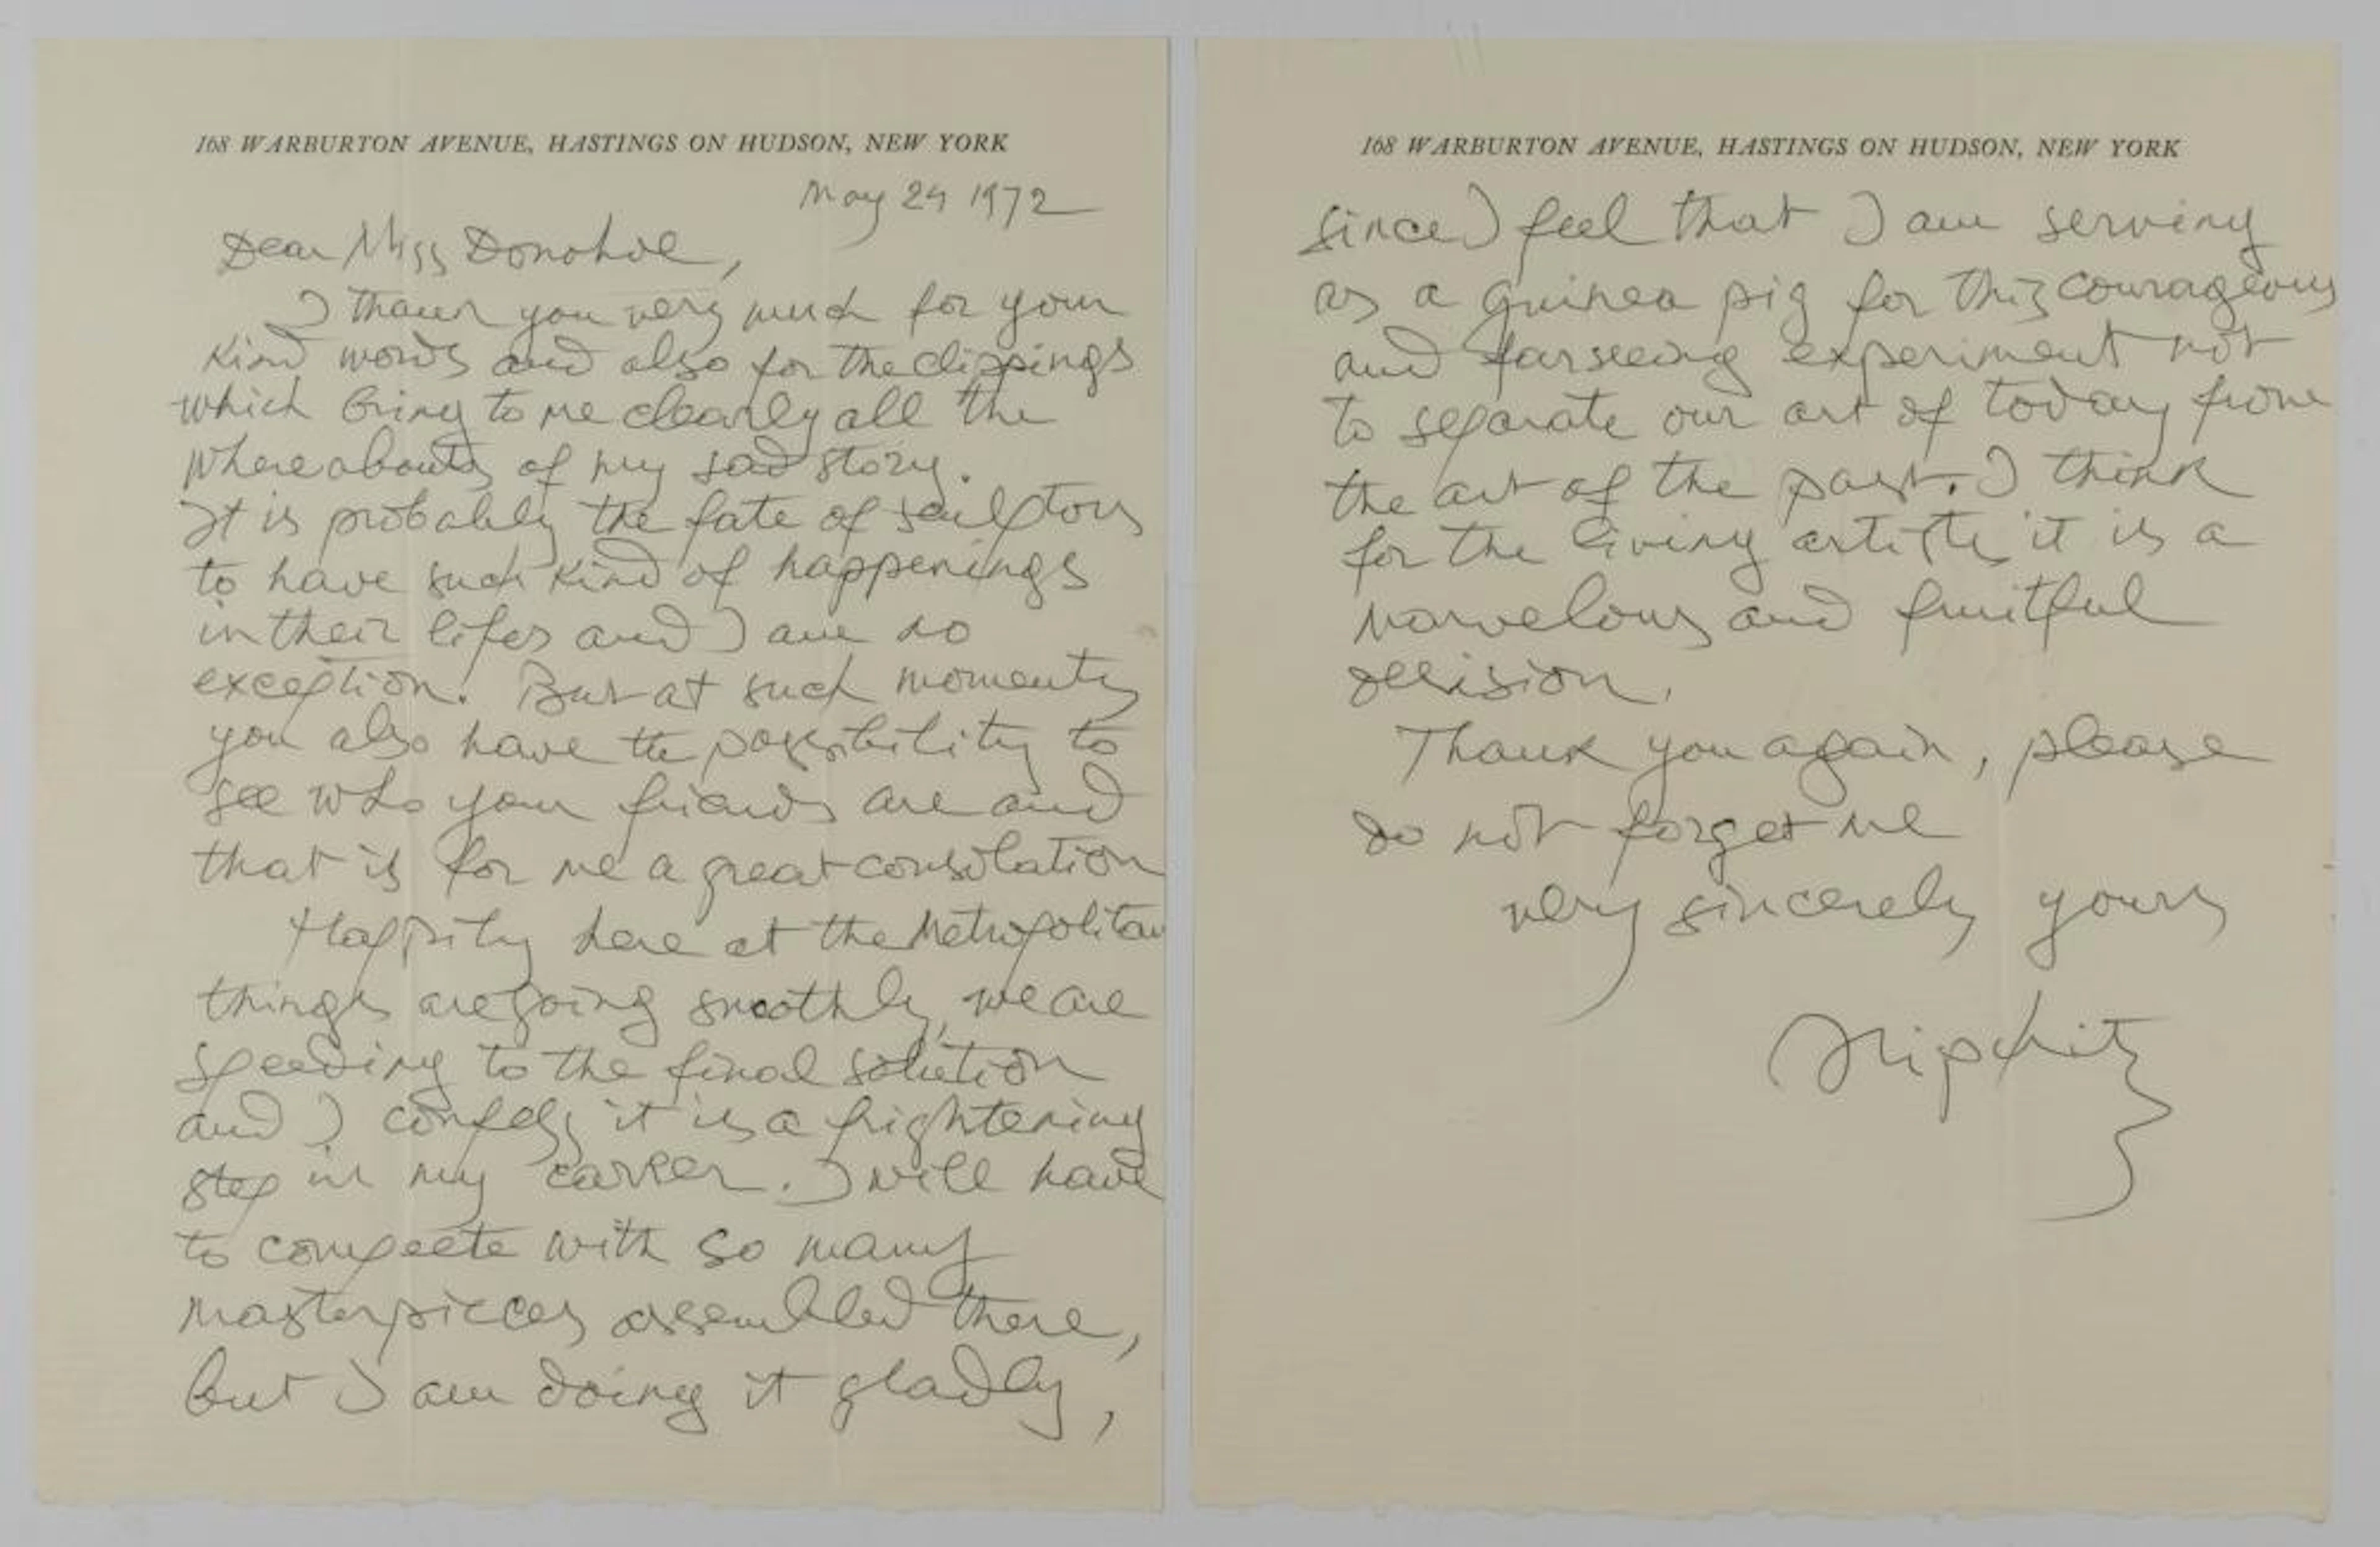 168 WARBURTON AVENUE, HASTINGS ON HUDSON, NEW YORK
May 24 1972
Dear Miss Donohoe,
I thank you very much for your
kind words and also for the clippings
which bring to me clearly all the
whereabouts of my sad story.
It is probably the fate of sculptors
to have such kind of happenings
in their lifes and I am no
exception. But at such moments
you also have the possibility to
see who your friends are and
that is for me a great consolation
Happily here at the Metropolitan
things are going smoothly, we are
speeding to the final solution
and I confess it is a frightening
step in my carrer. I will have
to compete with so many
masterpieces assembled there,
but I am doing it gladly,
168 WARBURTON AVENUE, HASTINGS ON HUDSON, NEW YORK
since I feel that I am serving
as a guinea pig for this courageous
and farseeing experiment not
to separate our art of today from
the art of the past. I think
for the living artists it is a
marvelous and fruitful
decision.
Thank you again, please
do not forget me
very sincerely yours
JLipchitz